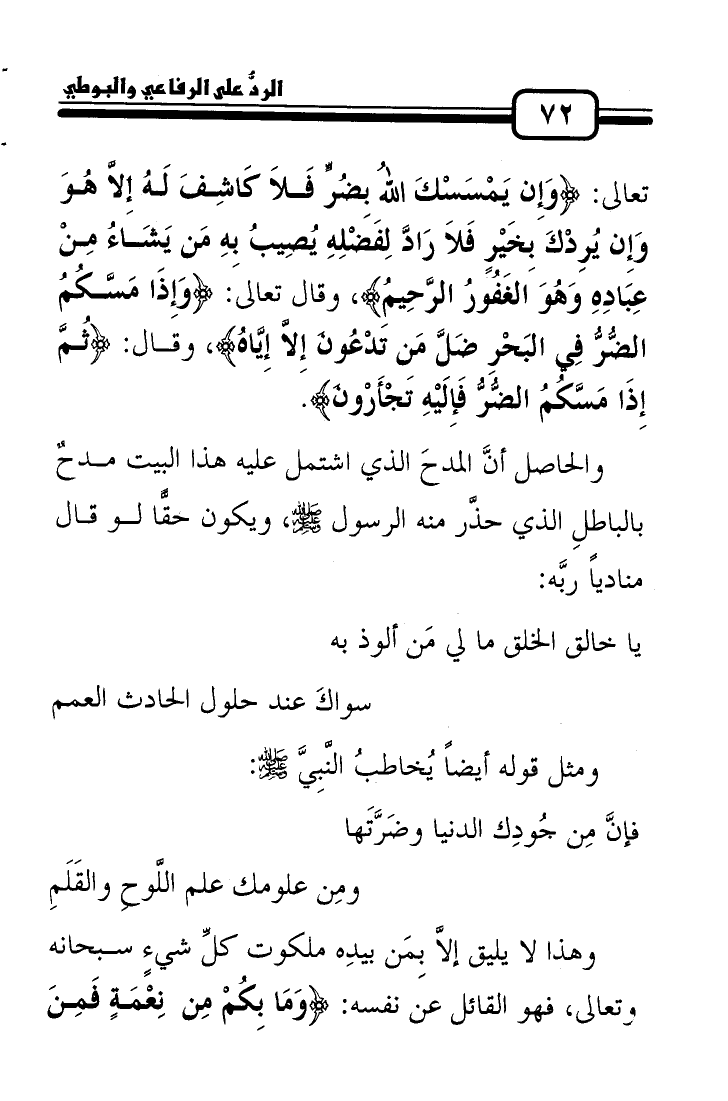 الردُّ على الرفاعي والبوطي
٧٢
تعالى: ﴿وَإِن يَمْسَسْكَ اللهُ بِضُرٍّ فَـلاَ كَاشِفَ لَـهُ إِلاَّ هُـوَ
وَإِن يُرِدْكَ بِخَيْرٍ فَلاَ رَادَّ لِفَضْلِهِ يُصِيبُ بِهِ مَن يَشَـاءُ مِـنْ
عِبَادِهِ وَهُوَ الغَفُورُ الرَّحِيمُ﴾، وقال تعالى: ﴿وَإِذَا مَسَّـكُمُ
الضُّرُّ فِي البَحْرِ ضَلَّ مَن تَدْعُونَ إِلاَّ إِيَّاهُ﴾، وقـال: ﴿ثُـمَّ
إِذَا مَسَّكُمُ الضُّرُّ فَإِلَيْهِ تَجْأَرُونَ﴾.
والحاصل أنَّ المدحَ الذي اشتمل عليه هذا البيت مـدحٌ
بالباطلِ الذي حذَّر منه الرسول ﷺ، ويكون حقًّا لـو قـال
منادياً ربَّه:
يا خالق الخلق ما لي مَن ألوذ به
سواكَ عند حلول الحادث العمم
ومثل قوله أيضاً يُخاطبُ النَّبِيَّ ﷺ:
فإنَّ مِن جُودِك الدنيا وضَرَّتَها
ومِن علومك علم اللَّوحِ والقَلَمِ
وهذا لا يليق إلاَّ بِمَن بيدِه ملكوت كلِّ شيءٍ سـبحانه
وتعالى، فهو القائل عن نفسه: ﴿وَمَا بِكُمْ مِن نِعْمَـةٍ فَمِـنَ